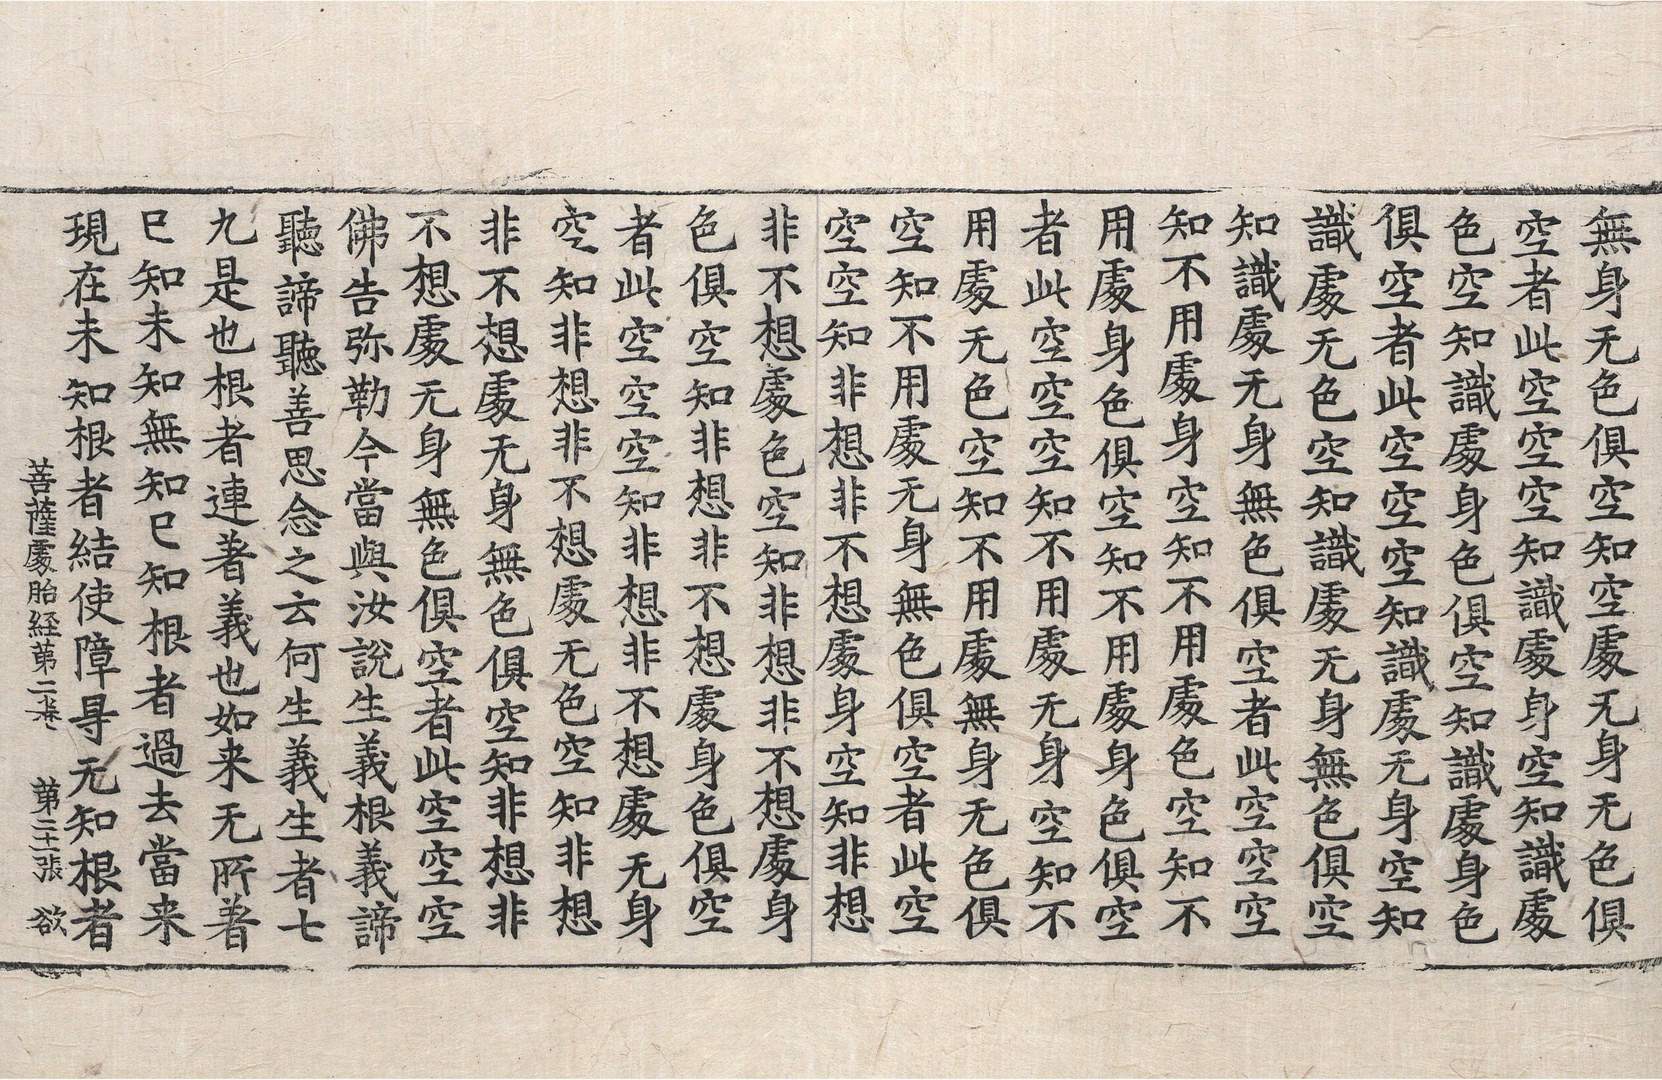 無身无色俱空知空處无身无色俱
空者此空空空知識處身空知識處
色空知識處身色俱空知識處身色
俱空者此空空空知識處无身空知
識處无色空知識處无身無色俱空
知識處无身無色俱空者此空空空
知不用處身空知不用處色空知不
用處身色俱空知不用處身色俱空
者此空空空知不用處无身空知不
用處无色空知不用處無身无色俱
空知不用處无身無色俱空者此空
空空知非想非不想處身空知非想
非不想處色空知非想非不想處身
色俱空知非想非不想處身色俱空
者此空空空知非想非不想處无身
空知非想非不想處无色空知非想
非不想處无身無色俱空知非想非
不想處无身無色俱空者此空空空
佛告弥勒今當與汝說生義根義諦
聽諦聽善思念之云何生義生者七
九是也根者連著義也如来无所著
已知未知無知已知根者過去當来
現在未知根者結使障㝵无知根者
菩薩處胎経第二卷 第二十張 欲